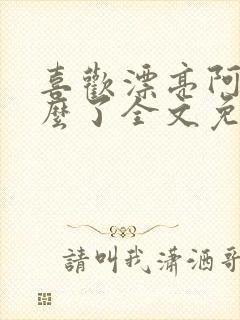 喜歡漂亮阿
麼了全文免
請叫我瀟洒哥